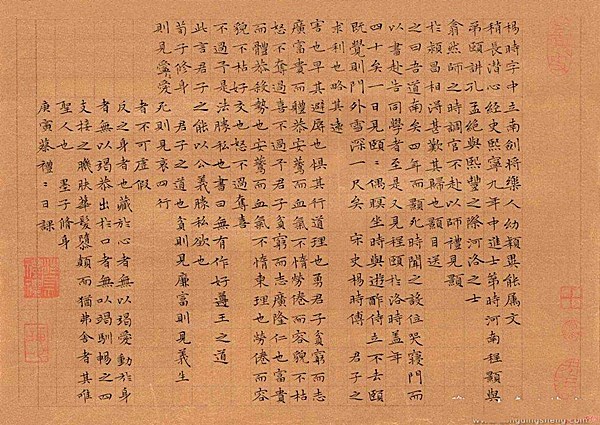 楊時字中立南劍將樂人幼穎異能属文
稍長潜心經史熙寧九年中進士第時河南程顥與
弟頤講孔孟絶與熙豐之際河洛之士
翕然師之時調官不赴以師禮見顥
於穎昌相得甚歡其歸也顥目送
之曰吾道南矣四年而顥死時聞之設位哭寢門而
以書赴告同學者至是又見程頤於洛時盖年
四十矣一日見頤〻偶瞑坐時與遊酢侍立不去頤
既覺則門外雪深一尺矣 宋史楊時傳 君子之
求利也略其遠
害也早其避辱也惧其行道理也勇君子貧窮而志
廣富貴而體恭安驚而血氣不惰勞倦而容貌不枯
怒不奪過喜不過予君子貧窮而志廣隆仁也富貴
而體恭殺勢也安驚而血氣不惰柬理也勞倦而容
貌不枯好文也怒不過奪喜
不過予是法勝私也書曰無有作好遵王之道
此言君子之能以公義勝私欲也
荀子修身 君子之道也貧則見廉富則見義生
則見愛死則見哀四行
者不可虚假
反之身者也藏於心者無以竭愛動於身
者無以竭恭出於口者無以竭馴暢之四
支接之職膚華髪隳顛而猶弗舍者其唯
聖人也 墨子脩身
庚寅 禮〻日課